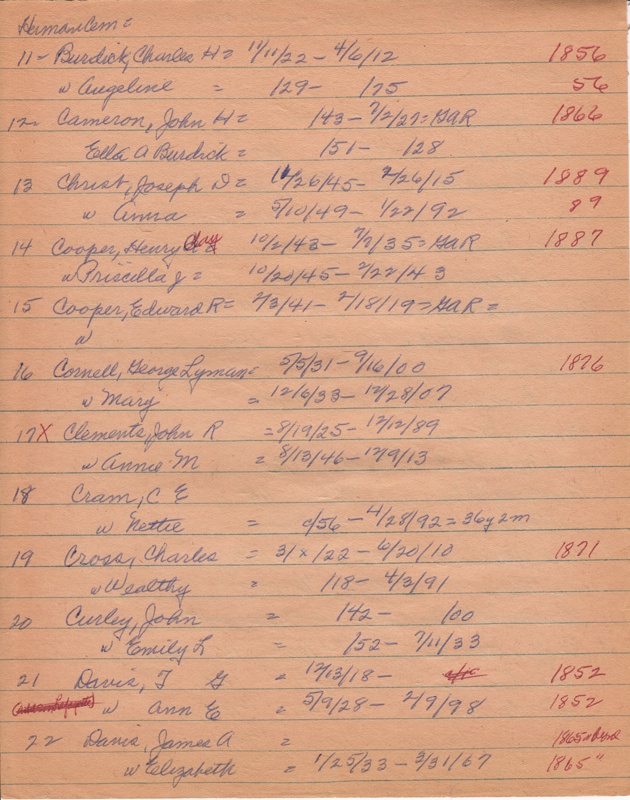 Herman Cem =
11 - Burdick, Charles H = 11/11/22 - 4/6/12 1856
w Angeline = /29 - /75 56
12 - Cameron, John H = /43 - 7/2/27 = GAR 1866
Ella A Burdick = /51 - /28
13 Christ, Joseph D = 11/26/45 - 2/26/15 1889
w Anna = 5/10/49 - 1/22/92 89
14 Cooper, Henry Clay 10/2/43 - 7/2/35 = GAR 1887
w Priscilla J = 10/20/45 - 2/22/43
15 Cooper, Edward R = 2/3/41 - 2/18/19 = GAR =
w
16 Cornell, George Lyman = 5/5/31 - 9/16/00 1876
w Mary = 12/6/33 - 12/28/07
17 X Clements, John R = 8/19/25 - 12/12/89
w Annie M = 8/13/46 - 12/9/13
18 Cram, C E
w Nettie = c/56 - 4/28/92 = 36y 2m
19 Cross, Charles = 3/x/22 - 6/20/10 1871
w Wealthy = /18 - 4/3/91
20 Curley, John = /42 - /00
w Emily L = /52 - 7/11/33
21 Davis, T G = 12/13/18 - 1852
w Ann E = 5/9/28 - 2/9/98 1852
22 Davis, James A = 1865
w Elizabeth = 1/25/33 - 3/31/67 1865 "